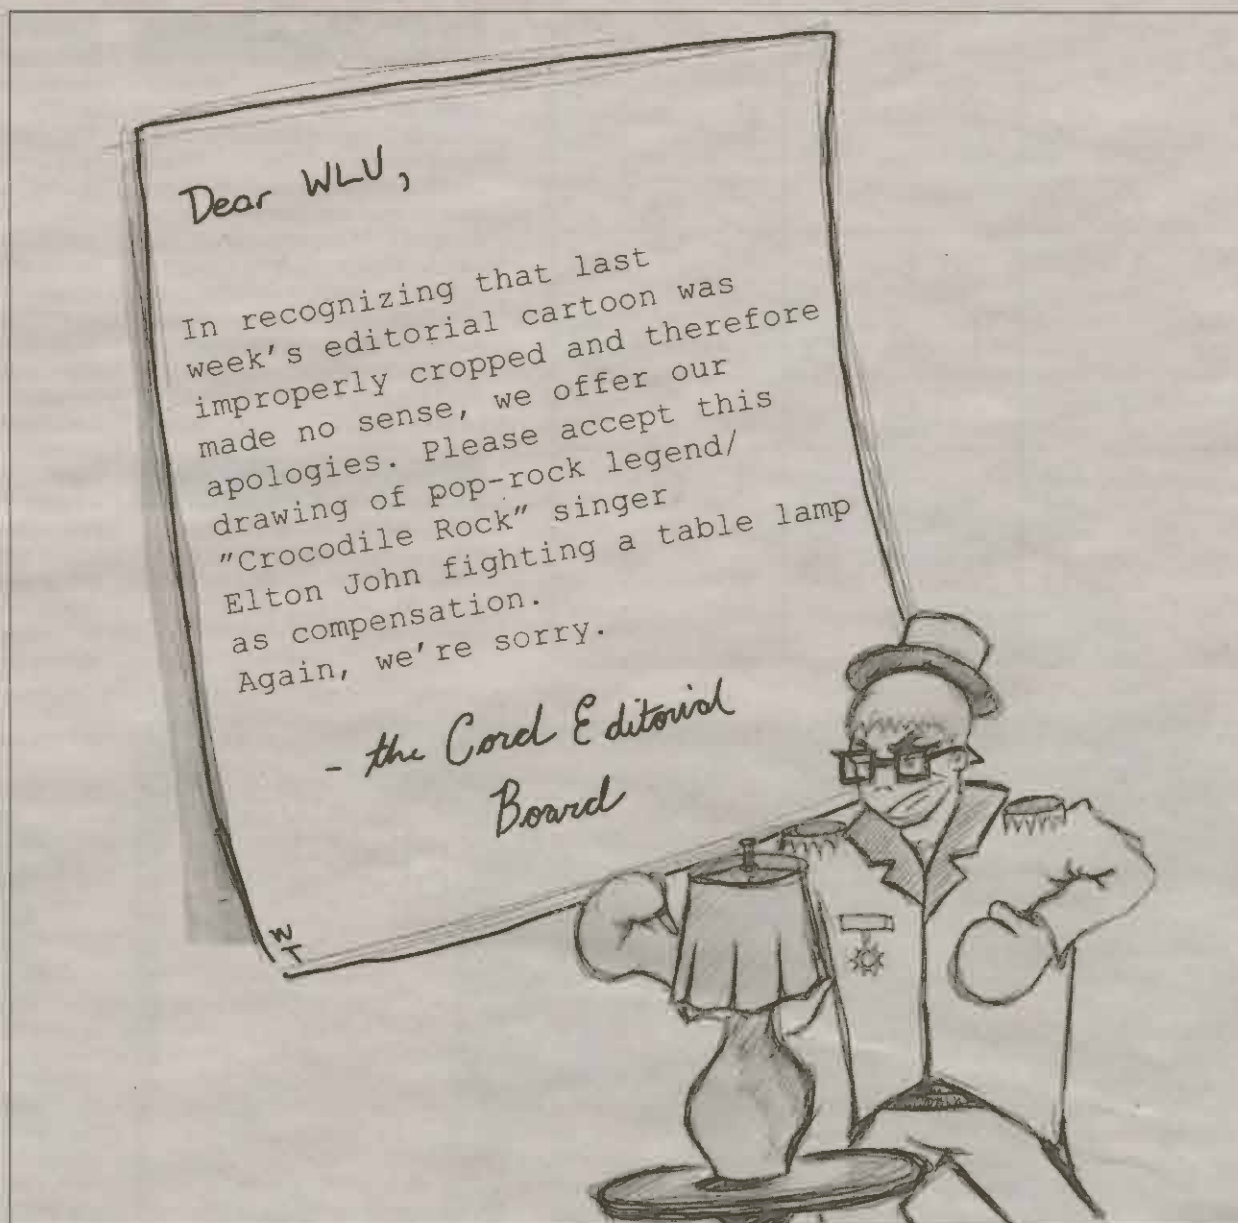 Dear WLU,
In recognizing that last
week's editorial cartoon was
improperly cropped and therefore
made no sense, we offer our
apologies. Please accept this
drawing of pop-rock legend/
"Crocodile Rock" singer
Elton John fighting a table lamp
as compensation.
Again, we're sorry.
- the Cord Editorial
Board
W
T